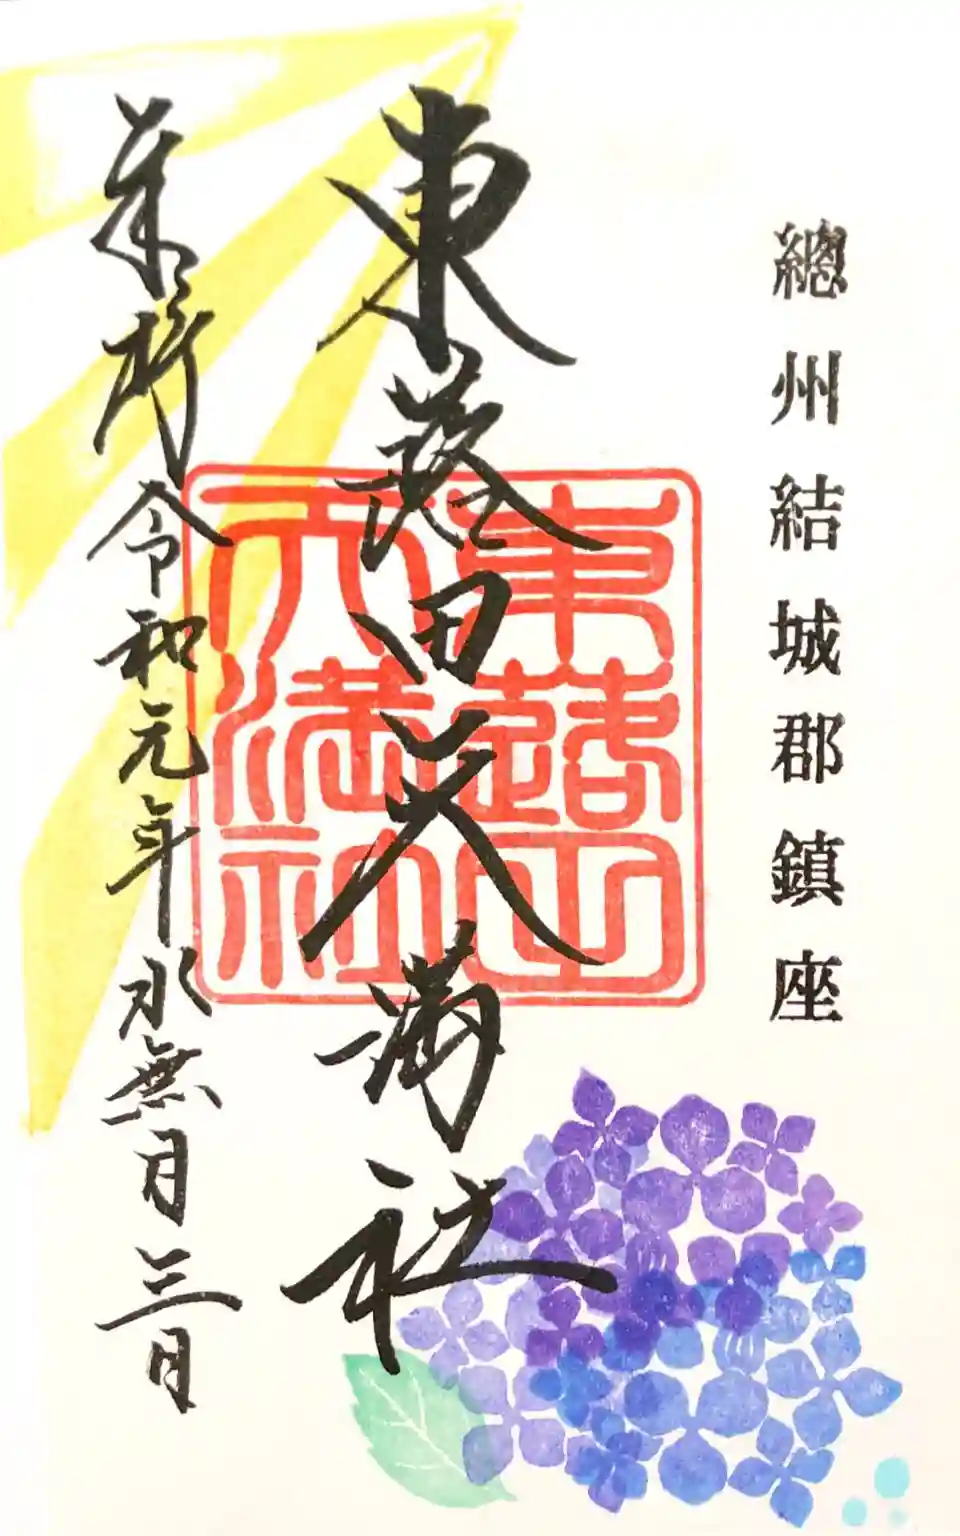 總州結城郡鎮座
東蕗田天満社
東蕗田
天満社
奉拝 令和元年水無月三日